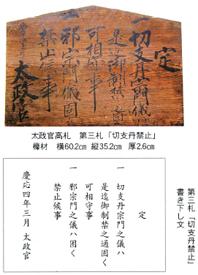 定
一切支丹宗門儀
是迄御制禁之通
可相守事
一邪宗門儀固
禁止候事
太政官
太政官高札 第三札「切支丹禁止」
樺材 横60.2cm 縦35.2cm 厚2.6cm
第三札「切支丹禁止」
書き下し文
定
一 切支丹宗門之儀ハ
是迄御制禁之通固く
可相守事
一 邪宗門之儀ハ固く
禁止候事
慶応四年三月 太政官